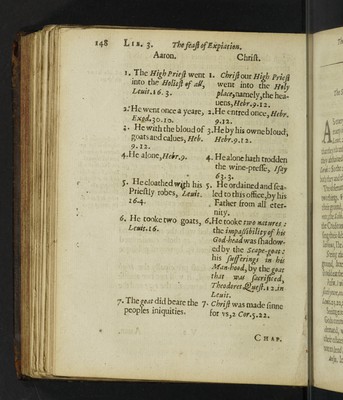 148 LIB. 3. The feast of Expiation.
Aaron. Christ.
1. The High Priest went
into the Holiest of all,
Levit. 16. 3.
2. He went once a yeare,
Exod. 30. 10.
3. He with the bloud of
goats and calues, Heb.
9. 12.
4. He alone, Hebr. 9.
5. He cloathed with his
Priestly robes, Levit.
16.4.
6. He tooke two goats,
Levit. 16.
7. The goat did beare the
peoples iniquities.
1. Christ our High Priest
went into the Holy
place, namely, the hea-
uens, Hebr. 9. 12.
2. He entred once, Hebr.
9.12.
3. He by his owne bloud,
Hebr. 9. 12.
4. He alone hath trodden
the wine-presse, Isay
63. 3.
5. He ordained and sea-
led to this office, by his
Father from all eter-
nity.
6. He tooke two natures:
the impassibility of his
God-head was shadow-
ed by the Scape-goat:
his sufferings in his
Man-hood, by the goat
that was sacrificed,
Theodoret. Quest. 12. in
Levit.
7. Christ was made sinne
for vs, 2 Cor. 5. 22.
CHAP.